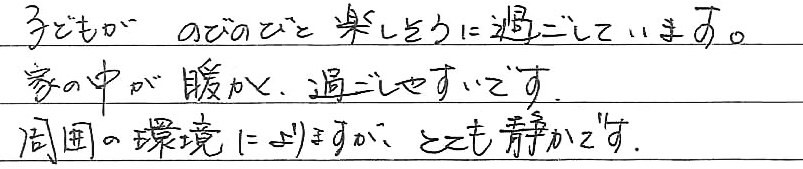 子どもが のびのびと 楽しそうに過ごしています。
家の中が 暖かく、過ごしやすいです.
周囲の環境によりますが、とても静かです.